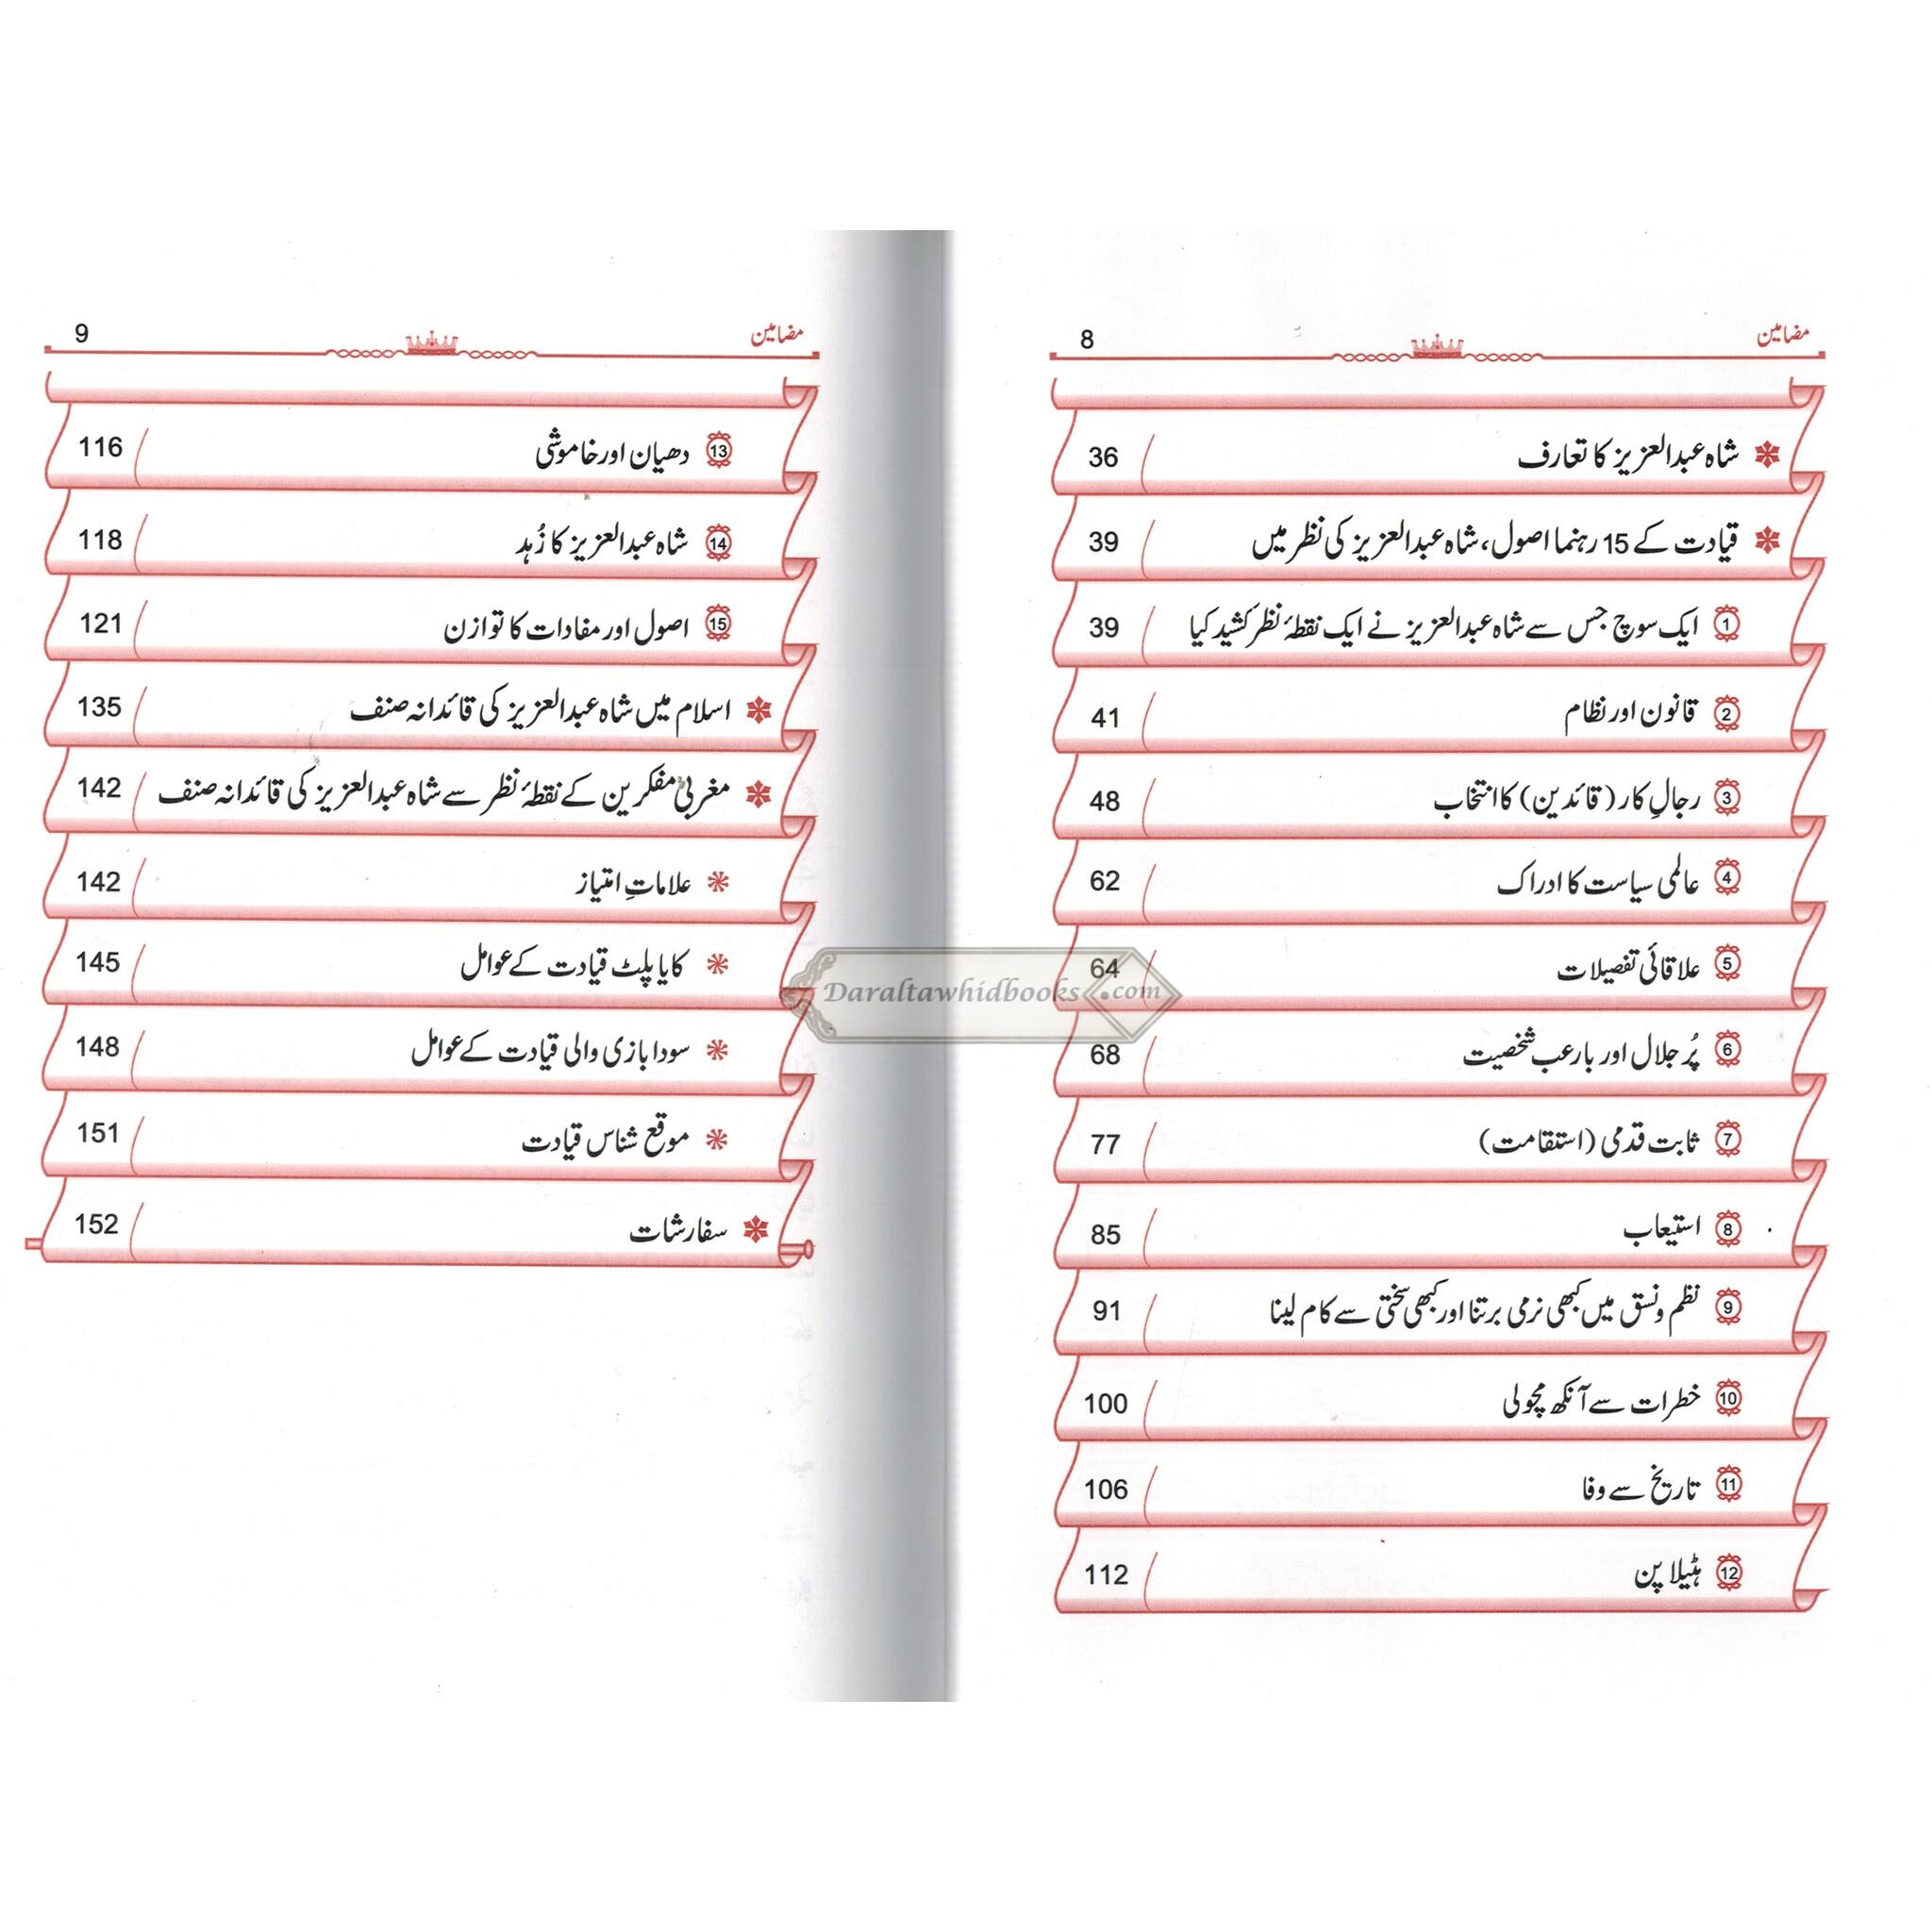 مضامین 8
شاہ عبدالعزیز کا تعارف 36
قیادت کے 15 رہنما اصول، شاہ عبدالعزیز کی نظر میں 39
1 ایک سوچ جس سے شاہ عبدالعزیز نے ایک نقطۂ نظر کشید کیا 39
2 قانون اور نظام 41
3 رجالِ کار (قائدین) کا انتخاب 48
4 عالمی سیاست کا ادراک 62
5 علاقائی تفصیلات 64
6 پُر جلال اور بارعب شخصیت 68
7 ثابت قدمی (استقامت) 77
8 استیعاب 85
9 نظم و نسق میں کبھی نرمی برتنا اور کبھی سختی سے کام لینا 91
10 خطرات سے آنکھ مچولی 100
11 تاریخ سے وفا 106
12 ہٹیلا پن 112
مضامین 9
13 دھیان اور خاموشی 116
14 شاہ عبدالعزیز کا زُہد 118
15 اصول اور مفادات کا توازن 121
اسلام میں شاہ عبدالعزیز کی قائدانہ صنف 135
مغربی مفکرین کے نقطۂ نظر سے شاہ عبدالعزیز کی قائدانہ صنف 142
علاماتِ امتیاز 142
کایا پلٹ قیادت کے عوامل 145
سودا بازی والی قیادت کے عوامل 148
موقع شناس قیادت 151
سفارشات 152
Daraltawhidbooks.com